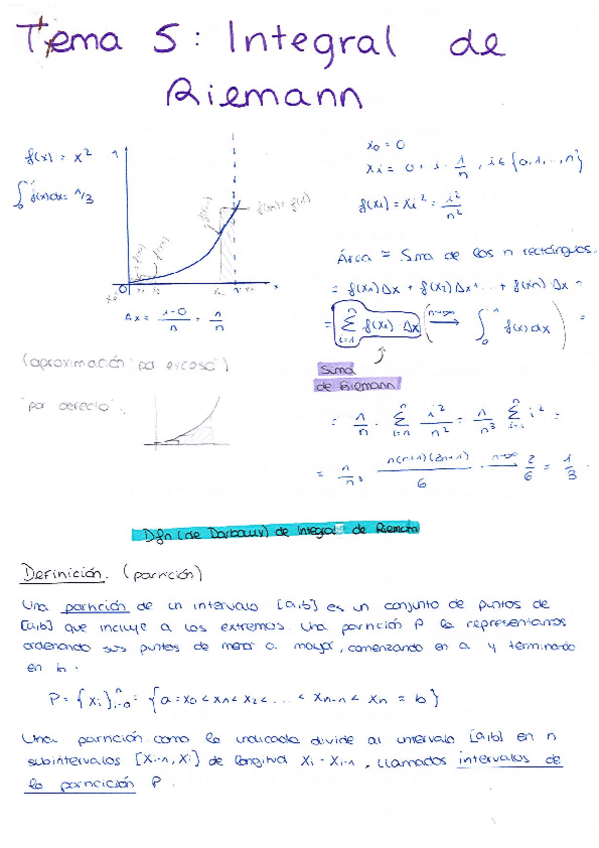 Tema 5: Integral de
Riemann
f(x) = x²
∫₀¹ f(x)dx = 1/3
f(xn) = f(1)
Δx = (1-0)/n = 1/n
x₀ = 0
xi = 0 + i · 1/n , i ∈ {0,1,...,n}
f(xi) = xi² = i²/n²
Área ≈ Suma de los n rectángulos.
= f(x₁)Δx + f(x₂)Δx + ... + f(xn)·Δx =
= Σᵢ₌₁ⁿ f(xi) Δx (n→∞ ⟶ ∫₀¹ f(x)dx) =
Suma
de Riemann
= 1/n · Σᵢ₌₁ⁿ i²/n² = 1/n³ Σᵢ₌₁ⁿ i² =
= 1/n³ · n(n+1)(2n+1)/6 n→∞ ⟶ 2/6 = 1/3.
(aproximación "por exceso")
"por defecto".
Dfn (de Darboux) de Integral de Riemann
Definición. (partición)
Una partición de un intervalo [a,b] es un conjunto de puntos de
[a,b] que incluye a los extremos. Una partición P la representamos
ordenando sus puntos de menor a mayor, comenzando en a y terminando
en b.
P = {xi}ⁿᵢ₌₀ = {a = x₀ < x₁ < x₂ < ... < xn-1 < xn = b}
Una partición como la indicada divide al intervalo [a,b] en n
subintervalos [xi-1, xi] de longitud xi - xi-1, llamados intervalos de
la partición P.